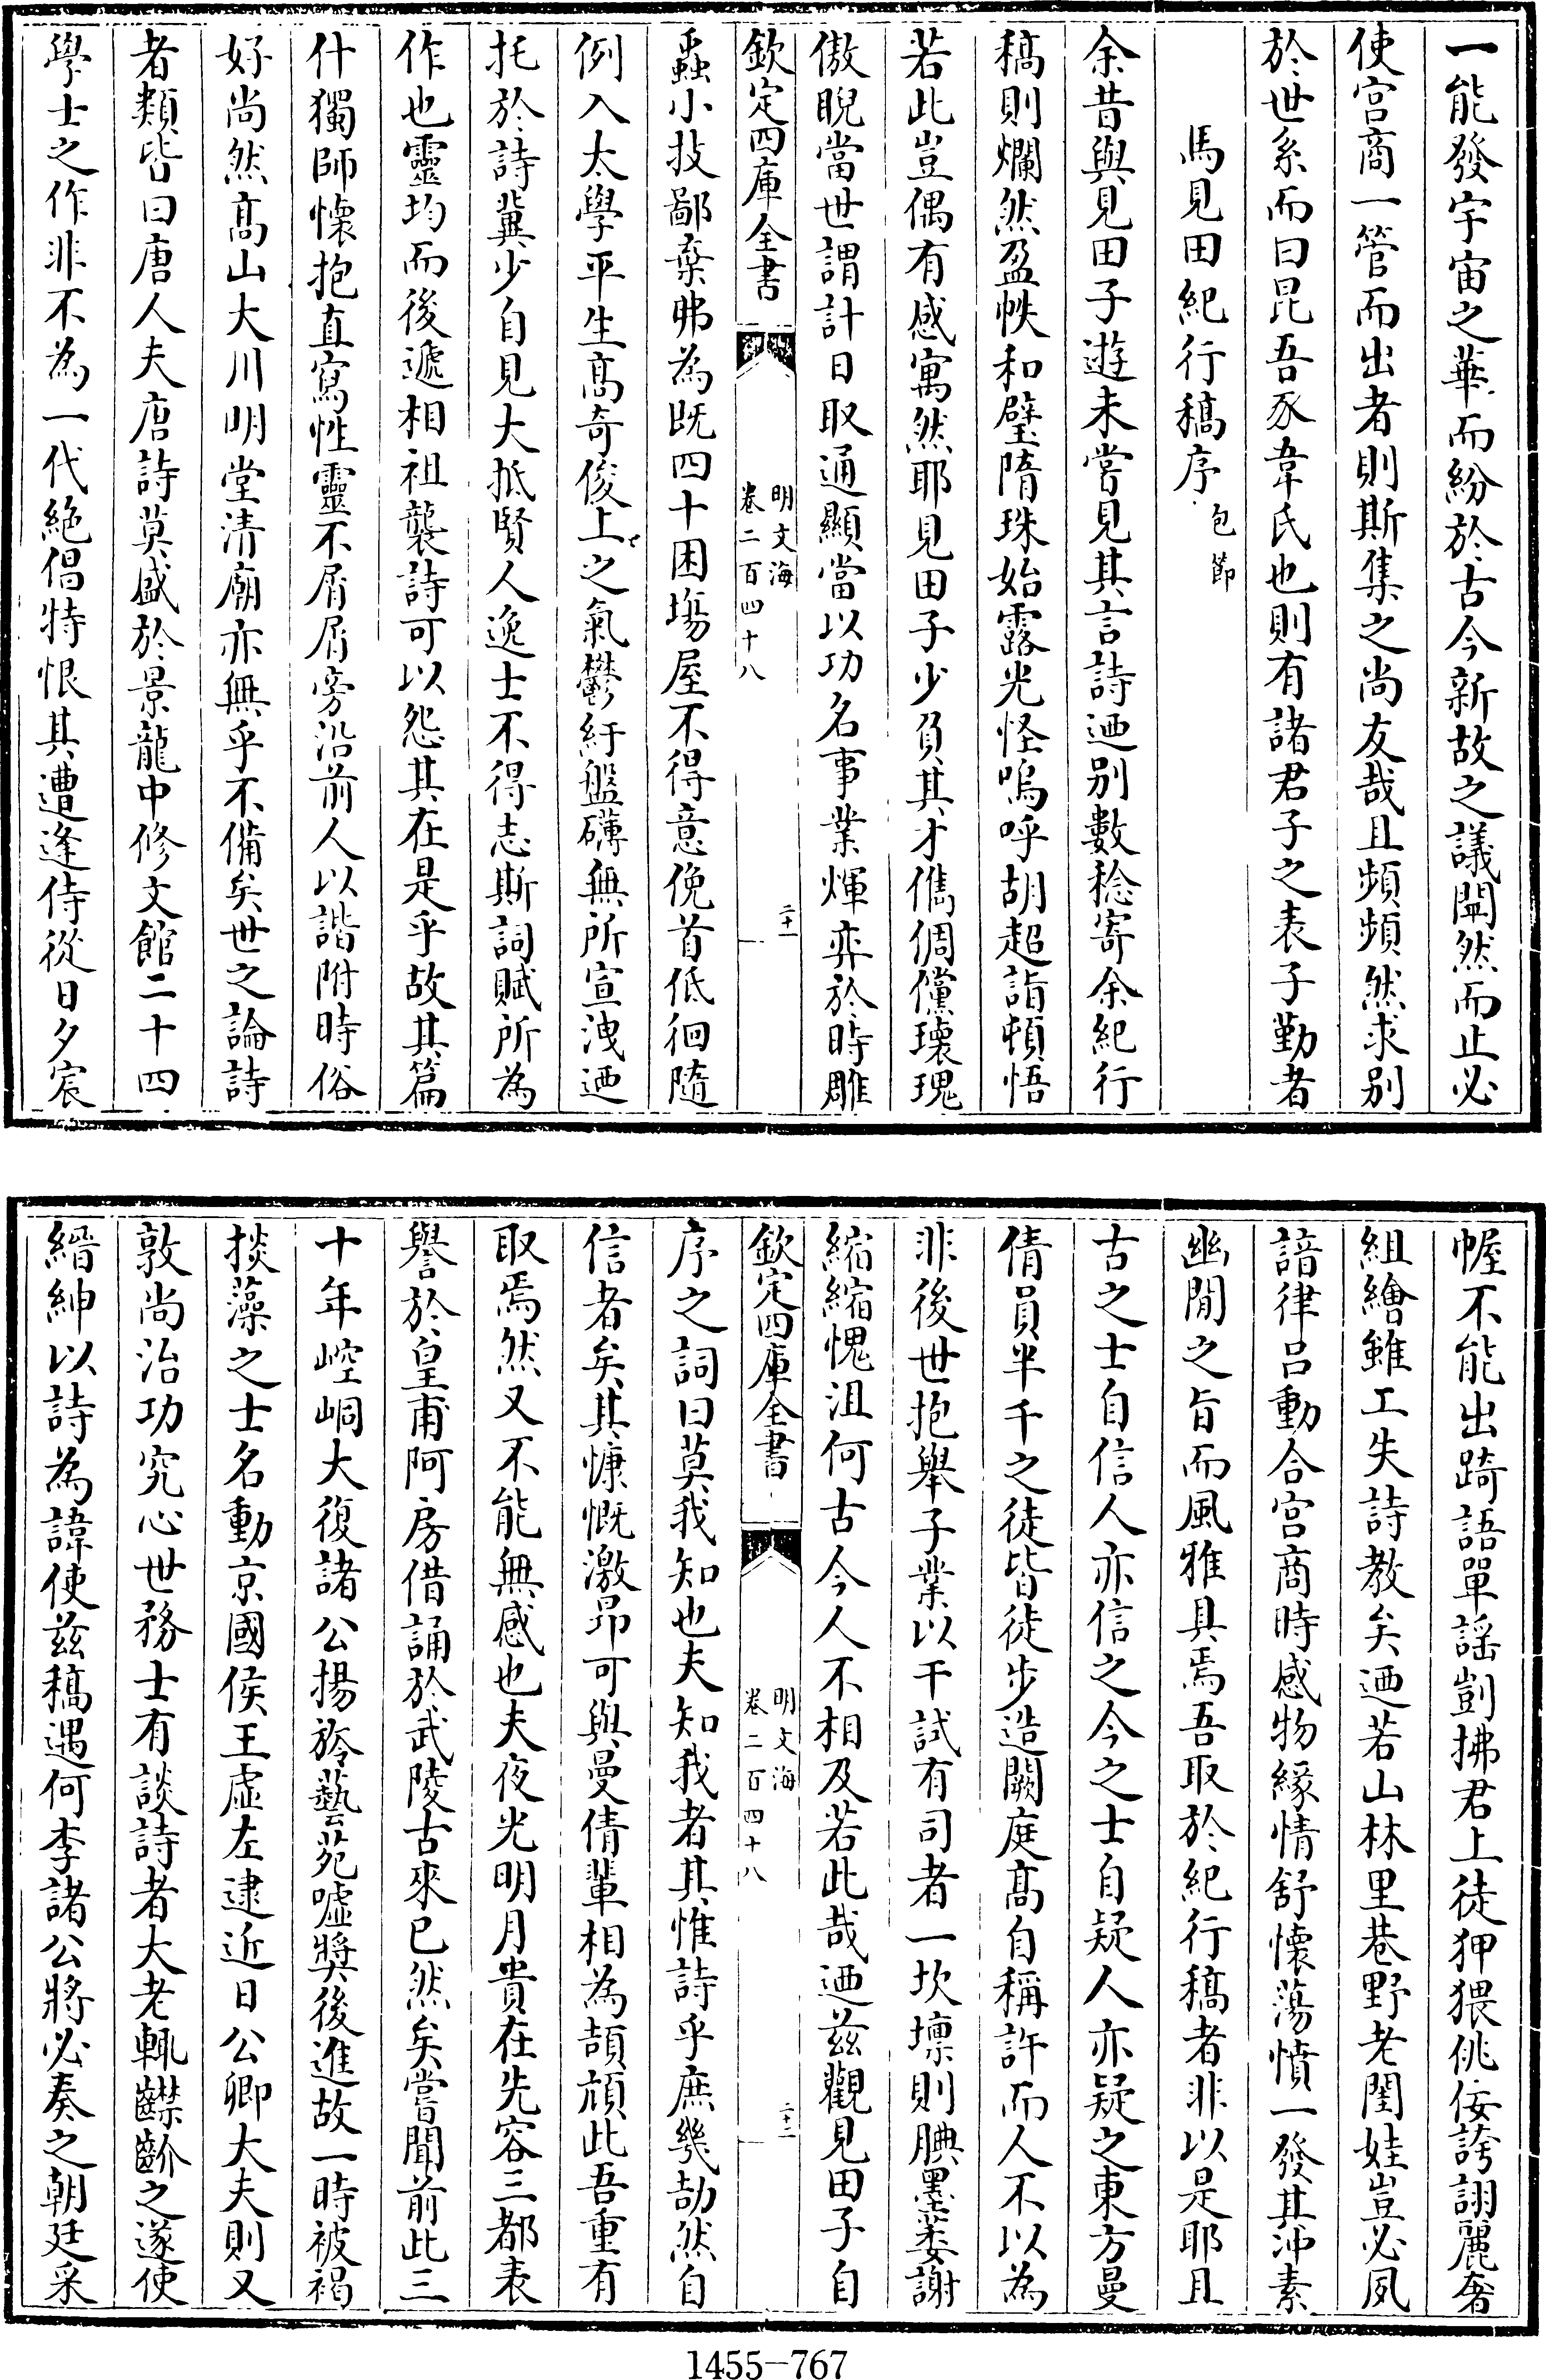 一能發宇宙之華而紛於古今新故之議闃然而止必
使宫商一管而出者則斯集之尚友哉且頻頻然求别
於世系而曰昆吾豕韋氏也則有諸君子之表子勤者
馬見田紀行稿序 包節
余昔與見田子遊未嘗見其言詩迺别數稔寄余紀行
稿則爛然盈帙和璧隋珠始露光怪嗚呼胡超詣頓悟
若此豈偶有感寓然耶見田子少負其才儁倜儻瓌瑰
傲睨當世謂計日取通顯當以功名事業煇弈於時雕
欽定四庫全書
明文海
卷二百四十八
二十一
蟲小技鄙棄弗為既四十困塲屋不得意俛首低徊隨
例入太學平生髙奇俊上之氣鬱紆盤礴無所宣洩迺
托於詩冀少自見大抵賢人逸士不得志斯詞賦所為
作也靈均而後遞相祖襲詩可以怨其在是乎故其篇
什獨師懷抱直寫性靈不屑屑旁沿前人以諧附時俗
好尚然髙山大川明堂清廟亦無乎不備矣世之論詩
者類皆曰唐人夫唐詩莫盛於景龍中修文館二十四
學士之作非不為一代絶倡特恨其遭逢侍從日夕宸
幄不能出踦語單謡剴拂君上徒狎猥佻佞誇詡麗奢
組繪雖工失詩教矣迺若山林里巷野老閨娃豈必夙
諳律吕動合宫商時感物緣情舒懷蕩憤一發其沖素
幽閒之旨而風雅具焉吾取於紀行稿者非以是耶且
古之士自信人亦信之今之士自疑人亦疑之東方曼
倩員半千之徒皆徒步造闕庭髙自稱許而人不以為
非後世抱舉子業以干試有司者一坎壈則腆墨䓕謝
縮縮愧沮何古今人不相及若此哉迺兹觀見田子自
欽定四庫全書
明文海
卷二百四十八
二十二
序之詞曰莫我知也夫知我者其惟詩乎庶幾劼然自
信者矣其慷慨激昂可與曼倩輩相為頡頏此吾重有
取焉然又不能無感也夫夜光明月貴在先容三都表
譽於皇甫阿房借誦於武陵古來已然矣嘗聞前此三
十年崆峒大復諸公揚旍藝苑噓奬後進故一時被褐
掞藻之士名動京國侯王虚左逮近日公卿大夫則又
敦尚治功究心世務士有談詩者大老輒齽齘之遂使
縉紳以詩為諱使兹稿遇何李諸公將必奏之朝廷采
1455—767